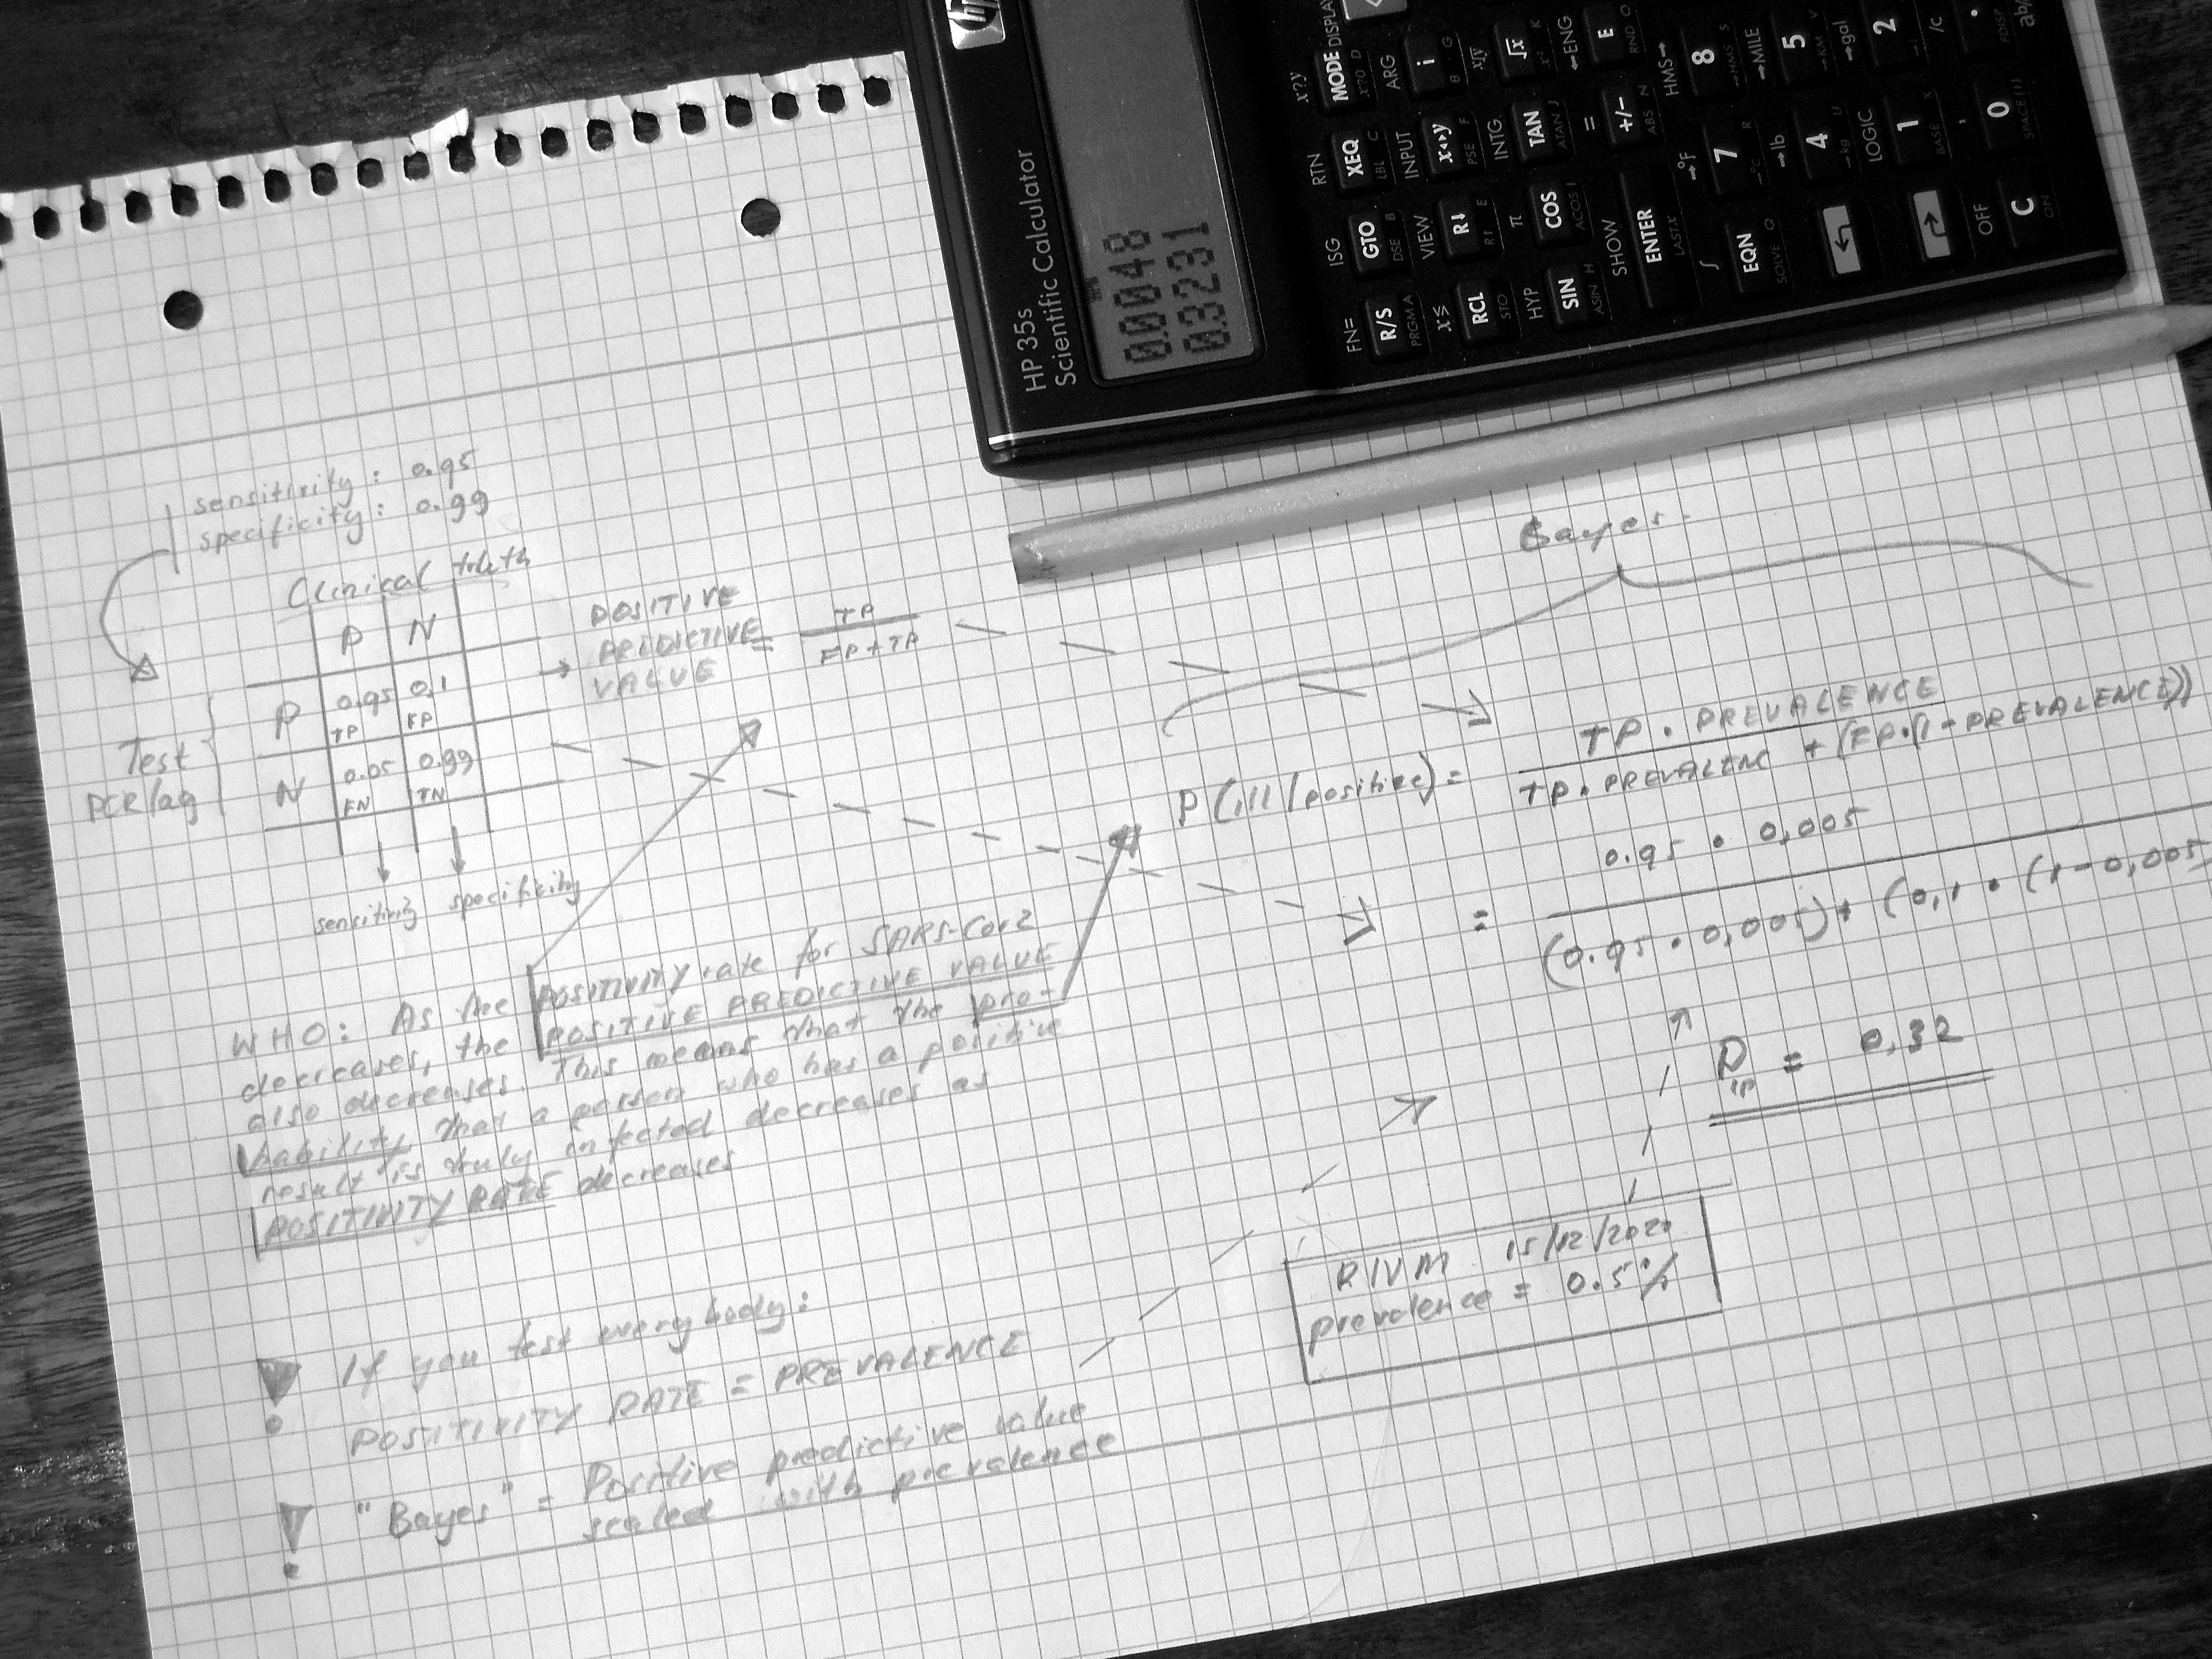 hp
HP 35s
Scientific Calculator
0.0048
0.3231
FN= ISG RTN x?y
R/S GTO XEQ MODE DISPLAY
PRGM A DSE B LBL C x?0 D
x≤ VIEW INPUT ARG
RCL R↓ x↔y i
STO R↑ E PSE F θ G
HYP π INTG x√y
SIN COS TAN √x
ASIN H ACOS I ATAN J x² K
SHOW = ←ENG
ENTER +/- E
LASTX ABS N RND O
∫ →°F HMS→
EQN 7 8
SOLVE Q →°C R →HMS S
→lb →MILE
4 5
→kg U →KM V
LOGIC →gal
1 2
BASE X
OFF , /c
C 0 .
ON SPACE FDISP
sensitivity: 0.95
specificity: 0.99
Clinical truth
P N
P 0.95 0,1
TP FP
N 0.05 0.99
FN TN
Test
PCR/ag
sensitivity specificity
→ POSITIVE
PREDICTIVE =
VALUE
TP
FP + TP
Bayes
P(ill/positive) =
TP . PREVALENCE
TP . PREVALENC + (FP.(1-PREVALENCE))
=
0.95 . 0,005
(0.95 . 0,005) + (0,1 . (1-0,005
P = 0,32
WHO: As the POSITIVITY rate for SARS-Cov2
decreases, the POSITIVE PREDICTIVE VALUE
also decreases. This means that the pro-
bability that a person who has a positive
result is truly infected decreases as
POSITIVITY RATE decreases
RIVM 15/12/2020
prevalence = 0.5%
! If you test everybody:
POSITIVITY RATE = PREVALENCE
! "Bayes" = Positive predictive value
scaled with prevalence